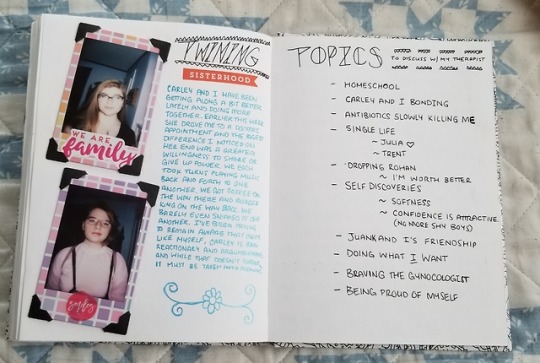 WE ARE
family
TWINING
SISTERHOOD
CARLEY AND I HAVE BEEN
GETTING ALONG A BIT BETTER
LATELY AND DOING MORE
TOGETHER. EARLIER THIS WEEK
SHE DROVE ME TO A DOCTORS
APPOINTMENT AND THE BIGGEST
DIFFERENCE I NOTICED ON
HER END WAS A GREATER
WILLINGNESS TO SHARE OR
GIVE UP POWER. WE EACH
TOOK TURNS PLAYING MUSIC
BACK AND FORTH TO ONE
ANOTHER, WE GOT COFFEE ON
THE WAY THERE AND BURGER
KING ON THE WAY BACK. WE
BARELY EVEN SNAPPED AT ONE
ANOTHER. I'VE BEEN TRYING
TO REMAIN AWARE THAT MUCH
LIKE MYSELF, CARLEY IS BOTH
REACTIONARY AND ARGUMENTATIVE
AND WHILE THAT DOESN'T
IT MUST BE TAKEN INTO
TOPICS
TO DISCUSS W/ MY THERAPIST
- HOMESCHOOL
- CARLEY AND I BONDING
- ANTIBIOTICS SLOWLY KILLING ME
- SINGLE LIFE
~ JULIA ♡
~ TRENT
- DROPPING ROHAN
~ I'M WORTH BETTER
- SELF DISCOVERIES
~ SOFTNESS
~ CONFIDENCE IS ATTRACTIVE
(NO MORE SHY BOYS)
- JUANK AND I'S FRIENDSHIP
- DOING WHAT I WANT
- BRAVING THE GYNOCOLOGIST
- BEING PROUD OF MYSELF